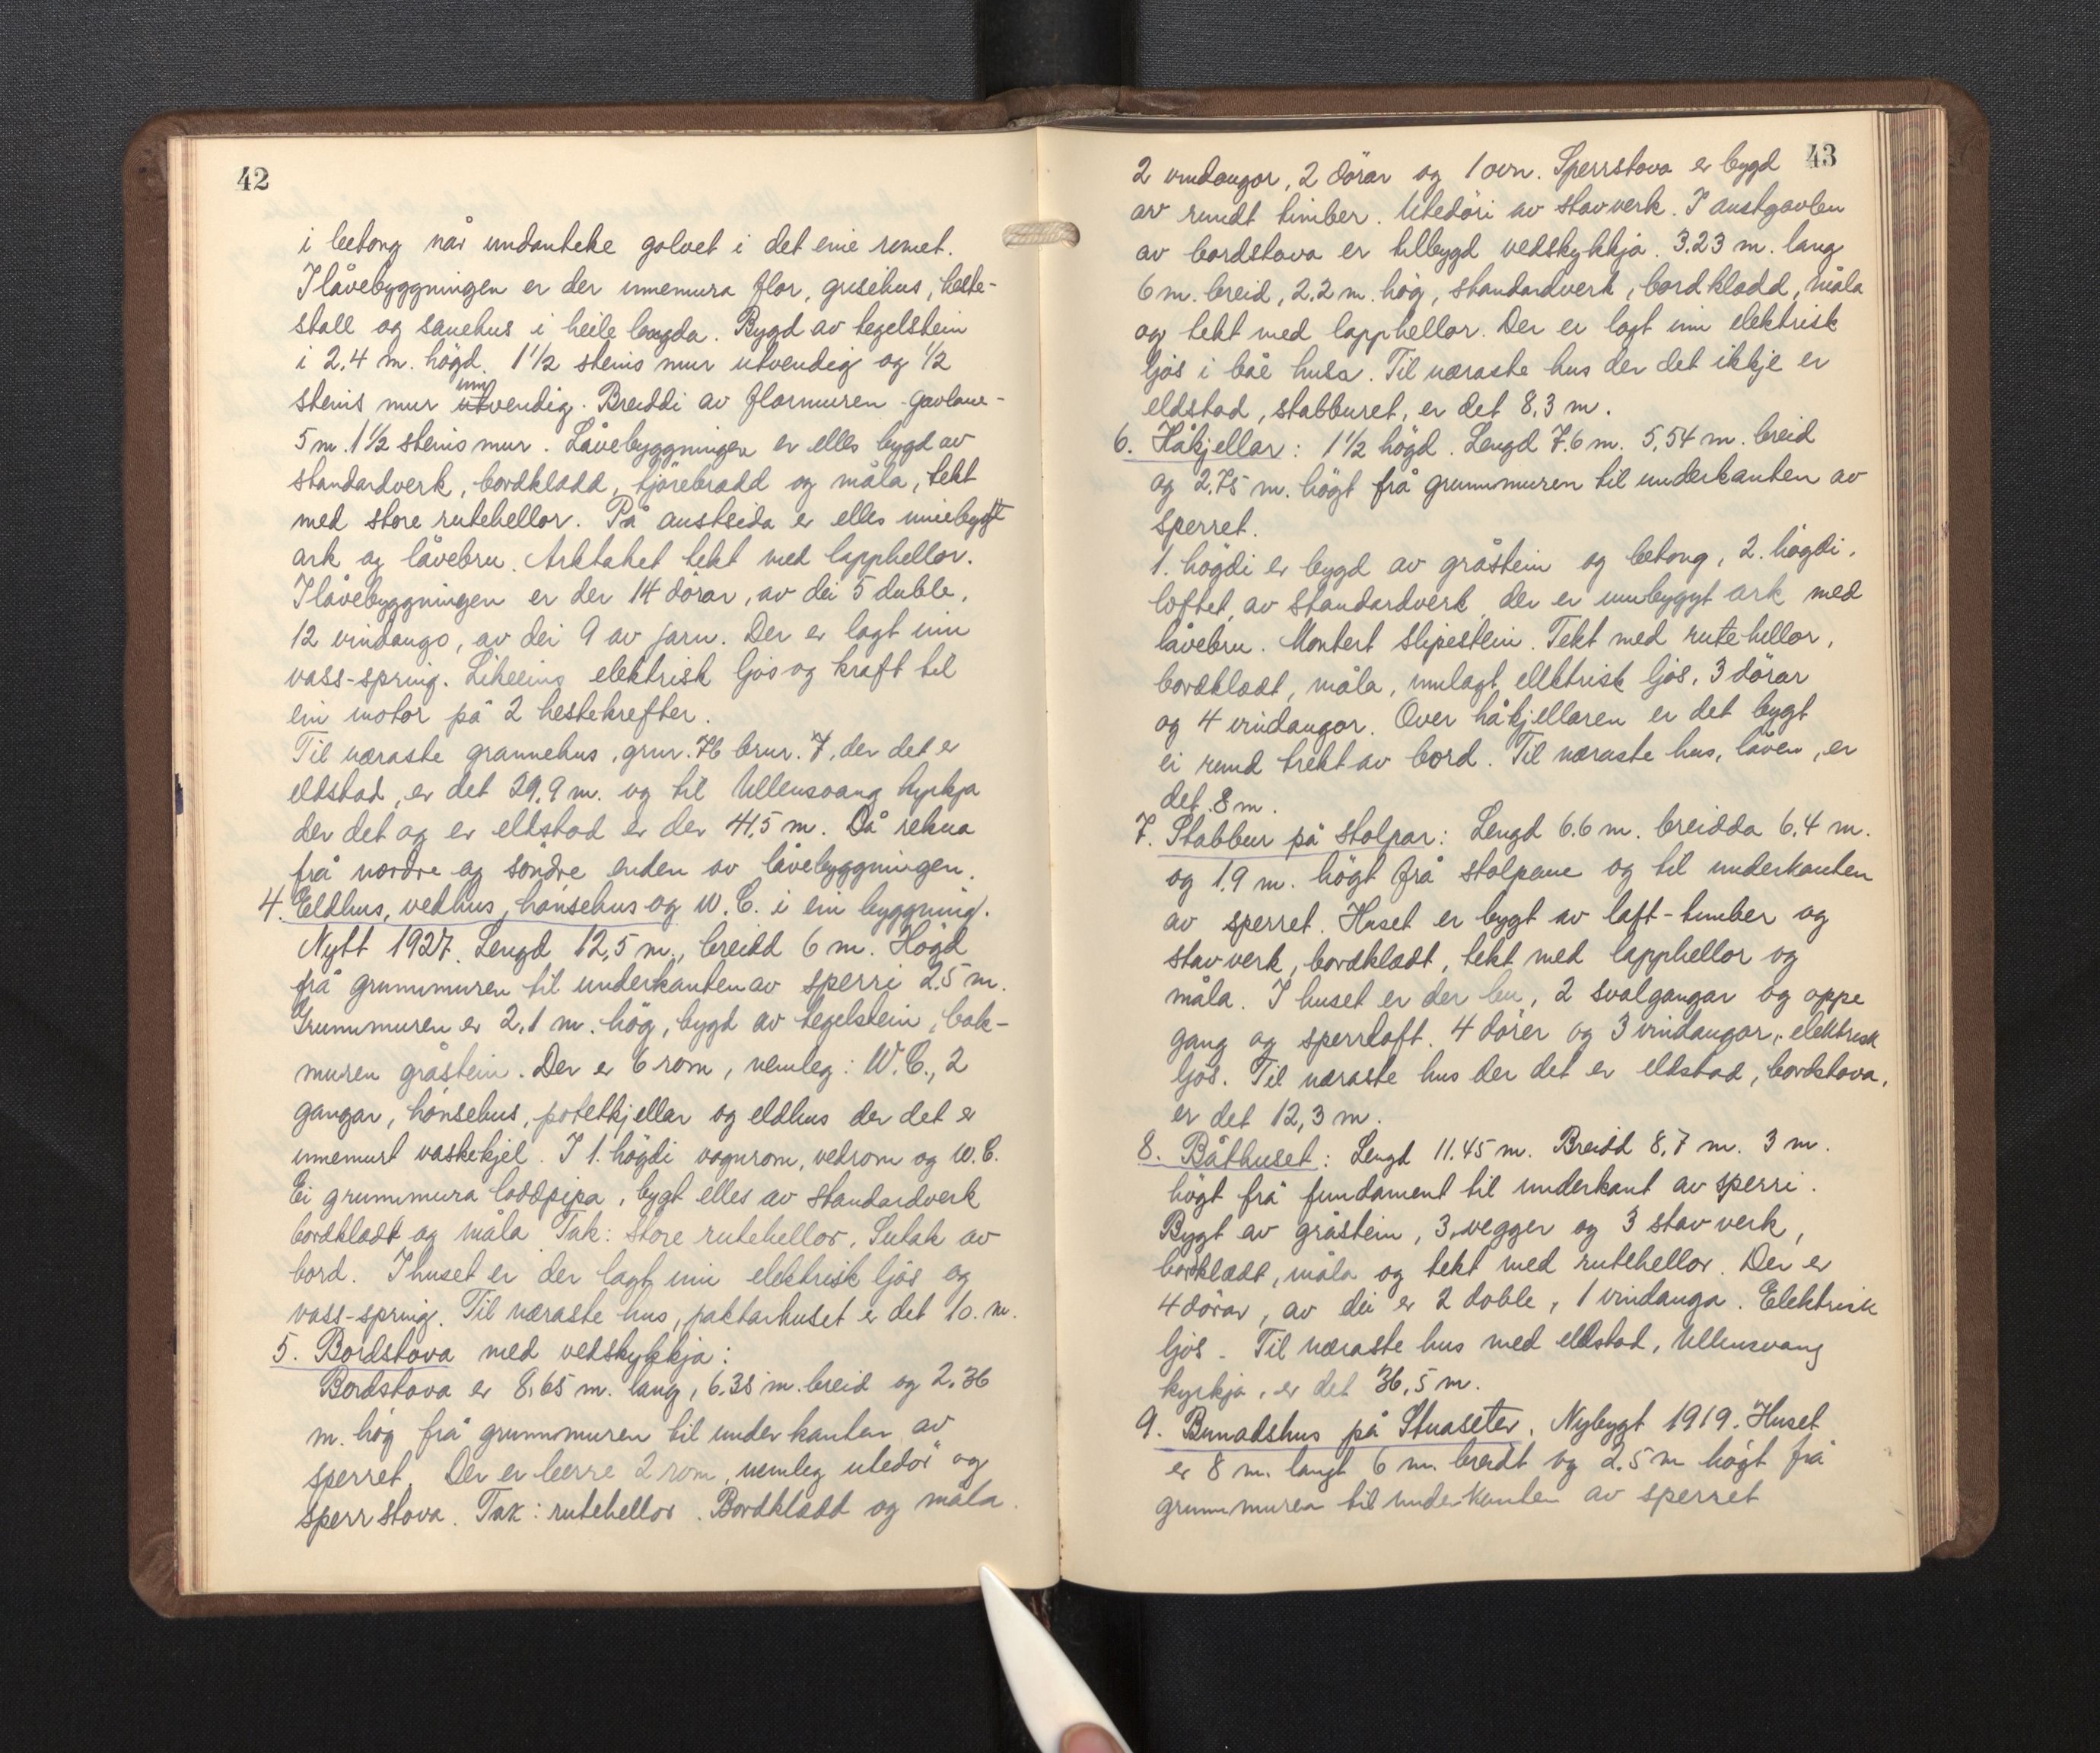 42
i betong når undanteke golvet i det eine romet.
I låvebyggningen er der innemura flor, grisehus, heste-
stall og sauehus i heile lengda. Bygd av tegelstein
i 2,4 m. högd. 1 1/2 steins mur utvendig og 1/2
steins mur utvendig. Breiddi av flormuren - gavlane -
inn
5 m. 1 1/2 steins mur. Låvebyggningen er elles bygd av
standardverk, bordkladd, tjörebradd og måla, tekt
med store rutehellor. På austsida er elles innebygt
ark og låvebru. Arktaket tekt med lapphellor.
I låvebyggningen er der 14 dörar, av dei 5 duble,
12 vindaugo, av dei 9 av jarn. Der er lagt inn
vass-spring. Likeeins elektrisk ljos og kraft til
ein motor på 2 hestekrefter.
Til næraste grannehus, gnr. 76 bnr. 7, der det er
eldstad, er det 29,9 m. og til Ullensvang kyrkja
der det og er eldstad er der 41,5 m. Då rekna
frå nordre og söndre enden av låvebyggningen.
4. Eldhus, vedhus, hönsehus og W. C. i ein byggning.
Nytt 1927. Lengd 12,5 m., breidd 6 m. Högd
frå grunnmuren til underkanten av sperri 2,5 m.
Grunnmuren er 2,1 m. hög, bygd av tegelstein, bak-
muren gråstein. Der er 6 rom, nemleg: W. C., 2
gangar, hönsehus, potetkjellar og eldhus der det er
innemurt vaskekjel. I 1. högdi vognrom, vedrom og W. C.
Ei grunnmura loddpipa, bygt elles av standardverk
bordkladt og måla Tak: Store rutehellor. Sutak av
bord. I huset er der lagt inn elektrisk ljós og
vass-spring. Til næraste hus, paktarhuset er det 10. m.
5. Bordstova med vedskykkja:
Bordstova er 8,65 m. lang, 6,38 m. breid og 2,36
m. hög frå grunnmuren til underkanten av
sperret. Der er berre 2 rom, nemleg utedör og
sperrstova. Tak: rutehellor. Bordkladd og måla.
43
2 vindaugor, 2 dörar og 1 ovn. Sperrstova er bygd
av rundt timber. Utedöri av stavverk. I austgavlen
av bordstova er tilbygd vedskykkja. 3.23 m. lang
6 m. breid, 2.2 m. hög, standardverk, bordkladd, måla
og tekt med lapphellor. Der er lagt inn elektrisk
ljós i båe husa. Til næraste hus der det ikkje er
eldstad, stabburet, er det 8,3 m.
6. Håkjellar: 1 1/2 högd. Lengd 7.6 m. 5,54 m. breid
og 2,75 m. högt frå grunnmuren til underkanten av
sperret.
1. högdi er bygd av gråstein og betong, 2. högdi,
loftet, av standardverk, der er innbygyt ark med
låvebru. Montert slipestein. Tekt med rutehellor,
bordkladt, måla, innlagt elektrisk ljós, 3 dörar
og 4 vindaugor. Over håkjellaren er det bygt
ei rund trekt av bord. Til næraste hus, låven, er
det 8 m.
7. Stabbur på stolpar: Lengd 6.6 m. breidda 6,4 m.
og 1.9 m. högt frå stolpane og til underkanten
av sperret. Huset er bygt av laft-timber og
stavverk, bordkladt, tekt med lapphellor og
måla. I huset er der bu, 2 svalgangar og oppe
gang og sperrloft. 4 dörer og 3 vindaugor, elektrisk
ljós. Til næraste hus der det er eldstad, bordstova,
er det 12,3 m.
8. Båthuset: Lengd 11.45 m. Breidd 8,7 m. 3 m.
högt frå fundament til underkant av sperri.
Bygt av gråstein, 3 vegger og 3 stavverk,
bordkladt, måla og tekt med rutehellor. Der er
4 dörar, av dei er 2 doble, 1 vindauga. Elektrisk
ljós. Til næraste hus med eldstad, Ullensvang
kyrkja, er det 36,5 m.
9. Bunadshus på Stuaseter. Nybygt 1919. Huset
er 8 m. langt 6 m. breidt og 2.5 m högt frå
grunnmuren til underkanten av sperret